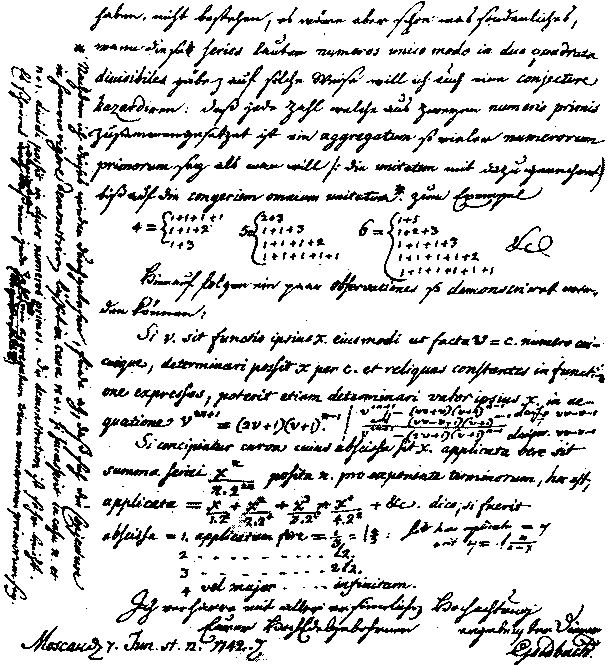 haben, nicht bestehen, es wäre aber schon was sonderliches,
wann eine series lauter numeros unico modo in duo quadrata
divisibiles gäbe auf solche Weise will ich auch eine conjecture
hazardiren: daß jede Zahl welche aus zweyen numeris primis
zusammengesetzet ist ein aggregatum so vieler numerorum
primorum sey als man will /: die unitatem mit dazu gerechnet
biß auf die congeriem omnium unitatum * zum Exempel
4 = { 1+1+1+1
1+1+2
1+3
5 = { 2+3
1+1+3
1+1+1+2
1+1+1+1+1
6 = { 1+5
1+2+3
1+1+1+3
1+1+1+1+2
1+1+1+1+1+1
&c
Hierauf folgen ein paar observationes so demonstriret wer-
den können:
Si v. sit functio ipsius x. eiusmodi ut facta v = c. numero cui-
cunque, determinari possit x per c. et reliquas constantes in functi-
one expressas, poterit etiam determinari valor ipsius x. in ae-
quatione v²ⁿ⁺¹ = (2v+1)(v+1)ⁿ⁻¹
Si concipiatur curva cuius abscissa sit x. applicata vero sit
summa seriei xⁿ/n.2²ⁿ posita n. pro exponente terminorum, hoc est,
applicata = x/1.2² + x²/2.2⁴ + x³/3.2⁶ + x⁴/4.2⁸ + &c. dico, si fuerit
abscissa = 1. applicatam fore =
2 - - - - - - - l2.
3 - - - - - - - 2l2.
4 vel major - - - infinitam.
Ich verharre mit aller ersinnlichen Hochachtung
Eurer HochEdelgebohrnen ergebenster Diener
Moscau d. 7. Jun. st. n. 1742. Goldbach.
* Nachdem ich dieses wieder durchgelesen, finde ich daß sich die conjecture
in summo rigore demonstriren lässet in casu n+1. si successerit in casu n. et
n+1. dividi possit in duos numeros primos. Die demonstration ist sehr leicht.
Es scheinet eine jede Zahl ein aggregatum trium numerorum primorum sey.